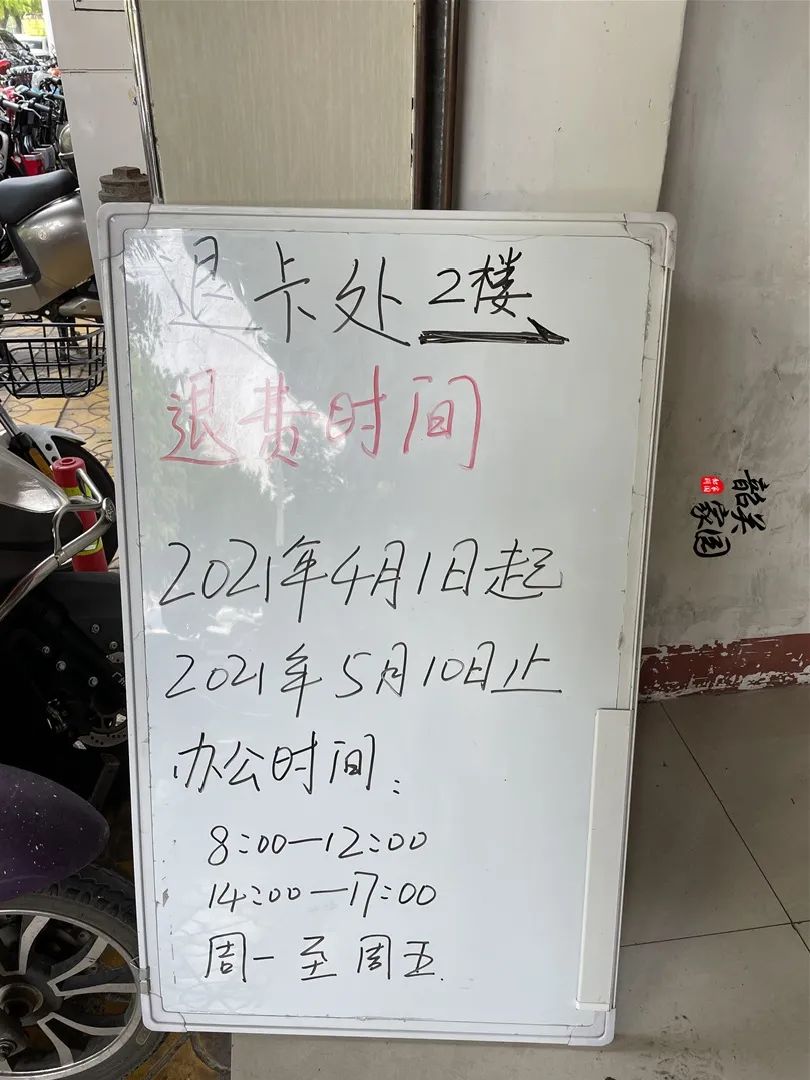 退卡处 2楼
退费时间
2021年4月1日起
2021年5月10日止
办公时间:
8:00—12:00
14:00—17:00
周一至周五
韶关
家园